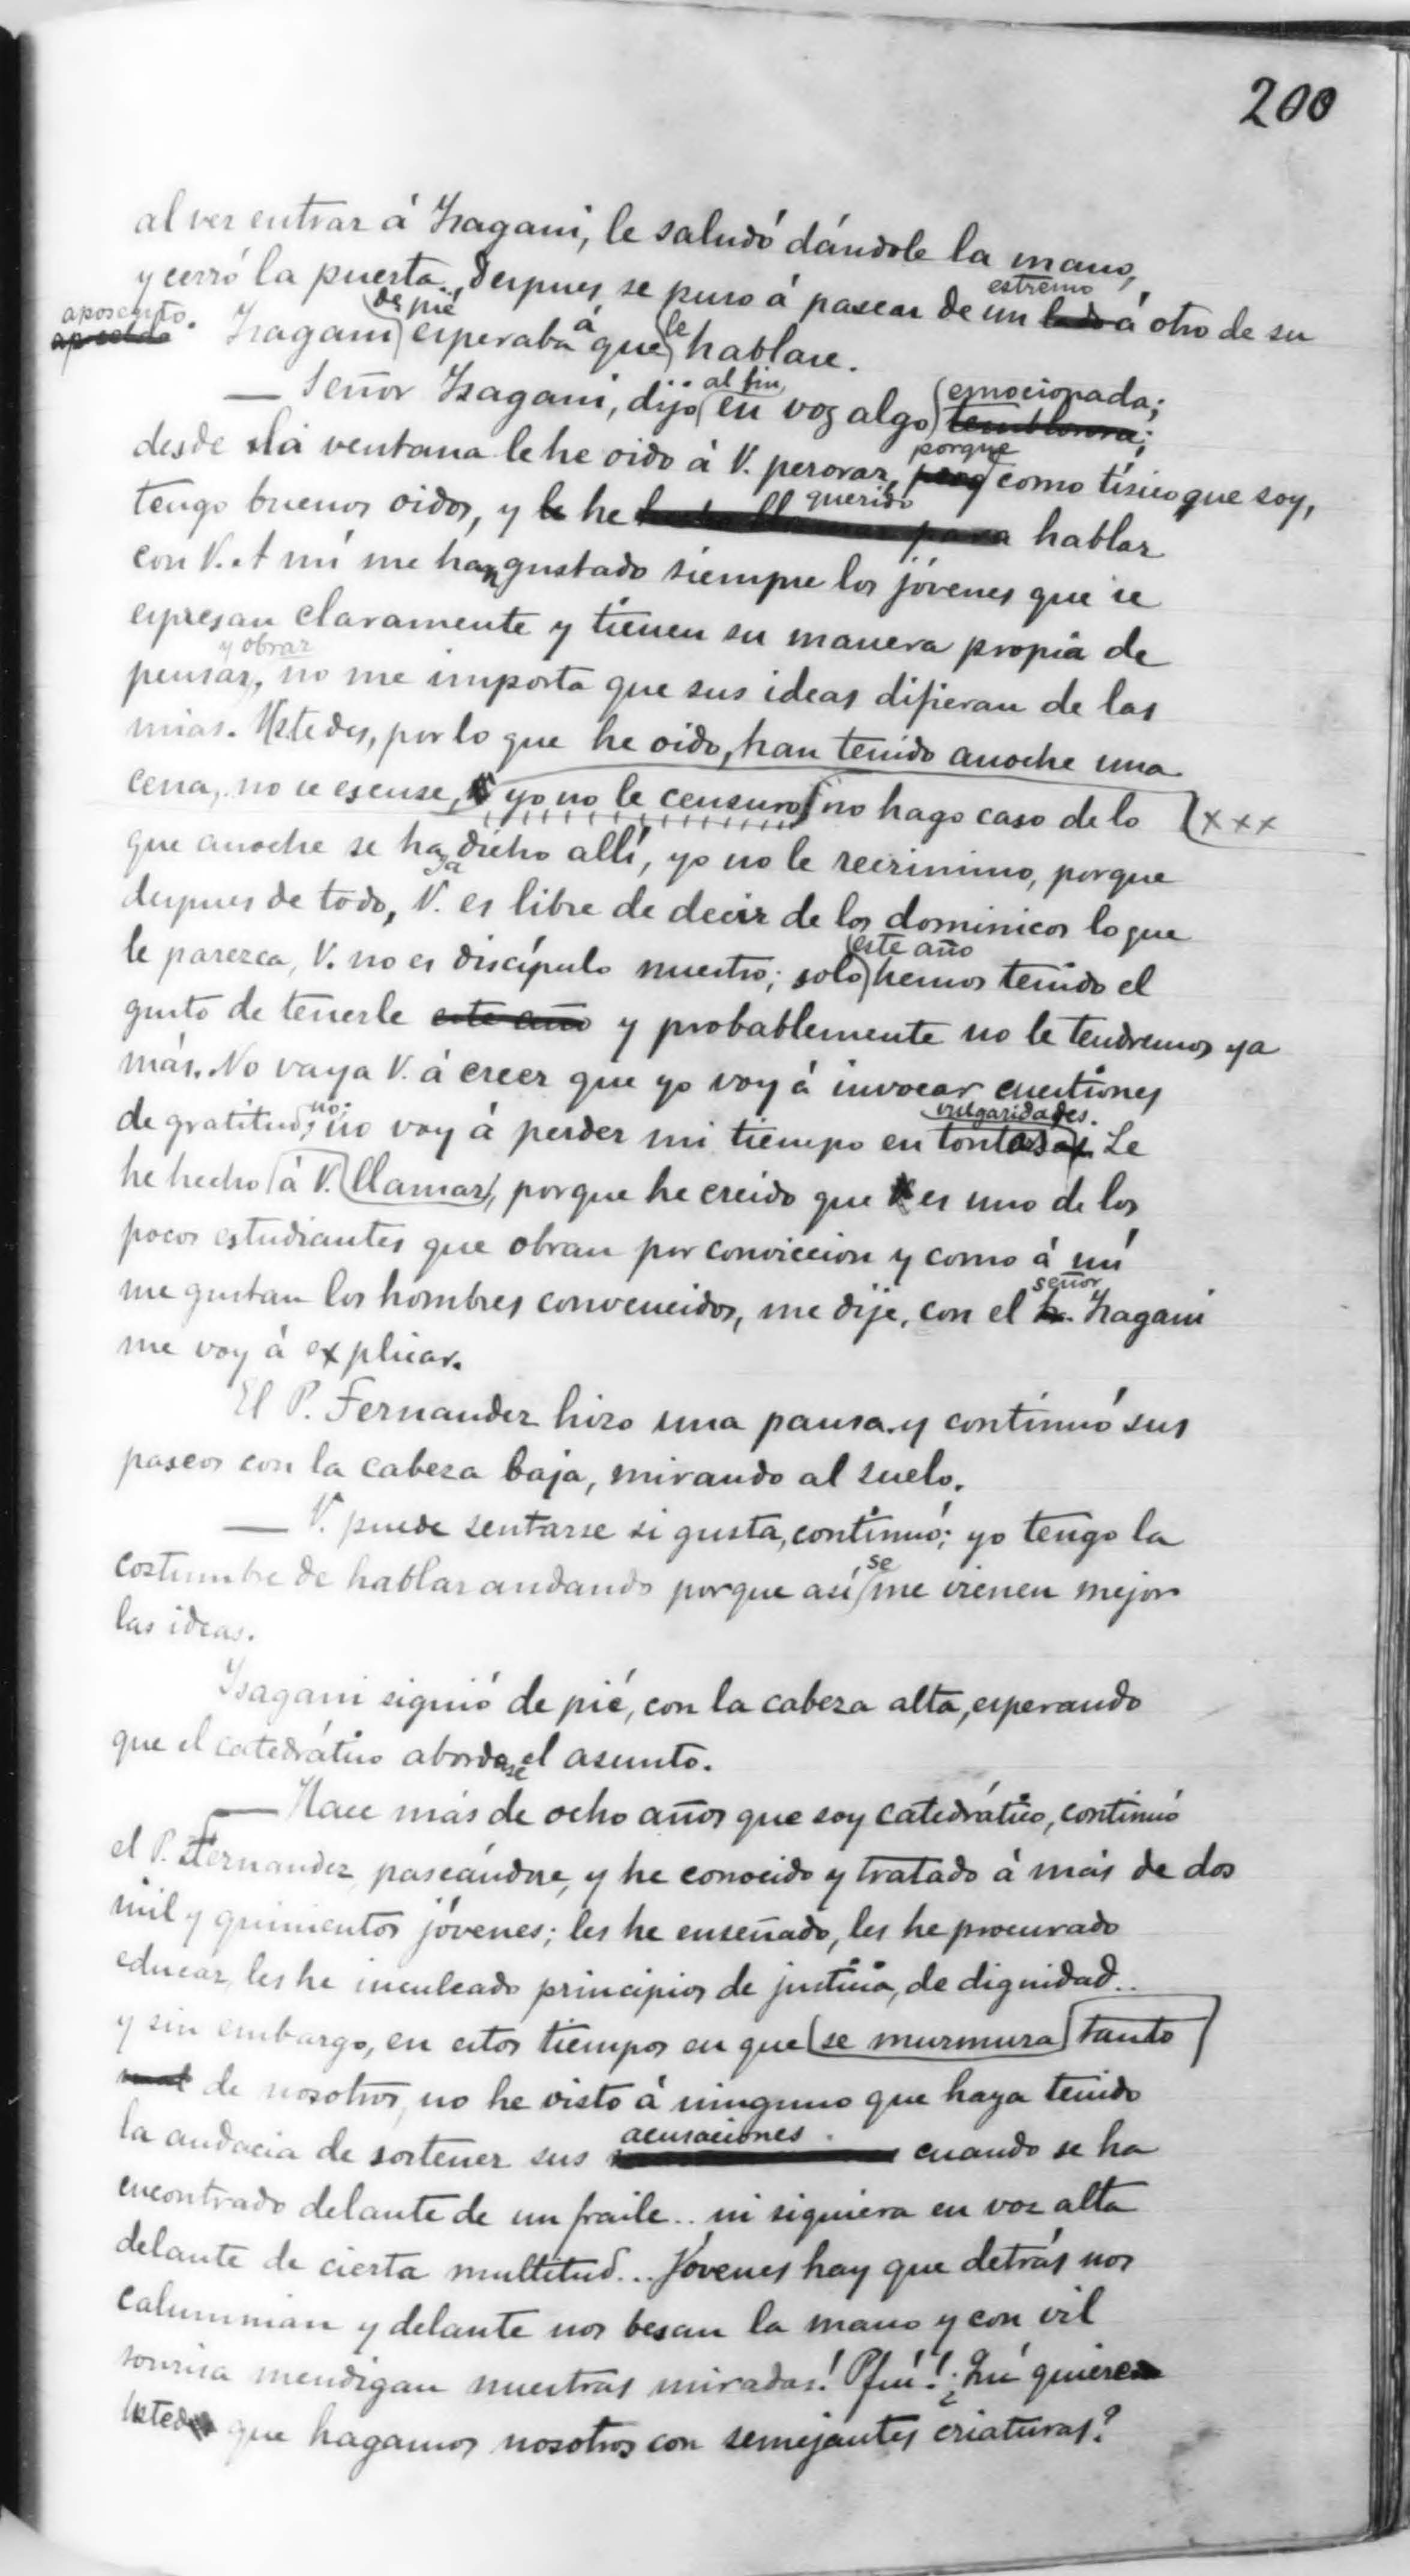 200
al ver entrar á Isagani, le saludó dándole la mano,
y cerró la puerta. Despues se puso á pasear de un lado estremo á otro de su
aposento. Isagani de pié esperaba á que le hablase.
— Señor Isagani, dijo al fin en voz algo temblorosa; emocionada;
desde la ventana le he oido á V. perorar, porque como tísico que soy,
tengo buenos oidos, y he querido hablar
con V. A mí me han gustado siempre los jóvenes que se
espresan claramente y tienen su manera propia de
pensar y obrar, no me importa que sus ideas difieran de las
mias. Ustedes, por lo que he oido, han tenido anoche una
cena, no se escuse, yo no le censuro, no hago caso de lo xxx
que anoche se haya dicho allí, yo no le recrimino, porque
despues de todo, V. es libre de decir de los dominicos lo que
le parezca, V. no es discípulo nuestro; solo este año hemos tenido el
gusto de tenerle este año y probablemente no le tendremos ya
más. No vaya V. á creer que yo voy á invocar cuestiones
de gratitud; no; no voy á perder mi tiempo en tonteras vulgaridades. Le
he hecho á V. llamar, porque he creido que es uno de los
pocos estudiantes que obran por conviccion y como á mí
me gustan los hombres convencidos, me dije, con el señor Isagani
me voy á explicar.
El P. Fernandez hizo una pausa y continuó sus
paseos con la cabeza baja, mirando al suelo.
— V. puede sentarse si gusta, continuó; yo tengo la
costumbre de hablar andando porque así se me vienen mejor
las ideas.
Isagani siguió de pié, con la cabeza alta, esperando
que el catedrático abordase el asunto.
— Hace más de ocho años que soy catedrático, continuó
el P. Fernandez paseándose, y he conocido y tratado á más de dos
mil y quinientos jóvenes; les he enseñado, les he procurado
educar, les he inculcado principios de justicia, de dignidad..
y sin embargo, en estos tiempos en que se murmura tanto
mal de nosotros, no he visto á ninguno que haya tenido
la audacia de sostener sus acusaciones cuando se ha
encontrado delante de un fraile.. ni siquiera en voz alta
delante de cierta multitud... Jóvenes hay que detrás nos
calumnian y delante nos besan la mano y con vil
sonrisa mendigan nuestras miradas! Pfú! ¿Qué quiere
usted que hagamos nosotros con semejantes criaturas?